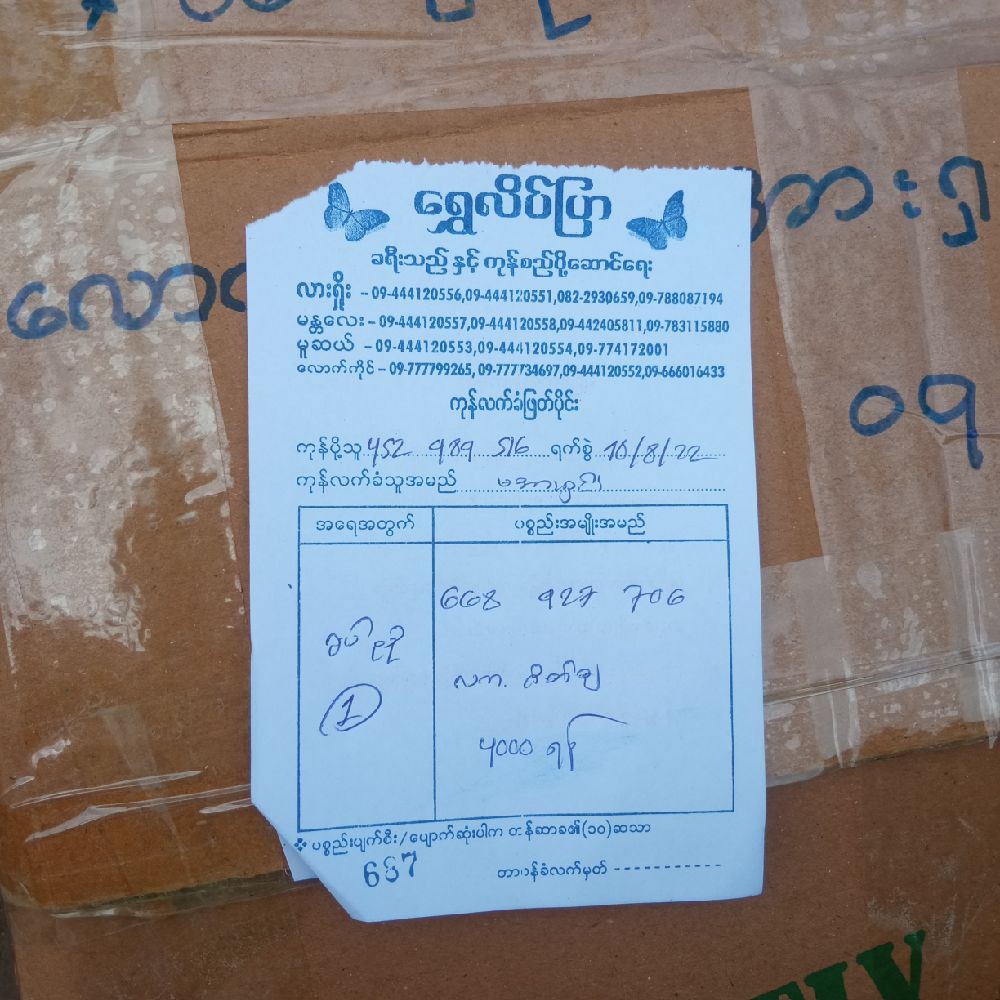 ရွှေလိပ်ပြာ
ခရီးသည် နှင့် ကုန်စည်ပို့ဆောင်ရေး
လားရှိုး - 09-444120556,09-444120551,082-2930659,09-788087194
မန္တလေး - 09-444120557,09-444120558,09-442405811,09-783115880
မူဆယ် - 09-444120553,09-444120554,09-774172001
လောက်ကိုင် - 09-777799265, 09-777734697,09-444120552,09-666016433
ကုန်လက်ခံဖြတ်ပိုင်း
ကုန်ပို့သူ 452 989 516 ရက်စွဲ 10/8/22
ကုန်လက်ခံသူအမည်
အရေအတွက် ပစ္စည်းအမျိုးအမည်
668 927 706
1
ပစ္စည်းပျက်စီး/ပျောက်ဆုံးပါက တန်ဆာခ၏(၁၀)ဆသာ
667
တာဝန်ခံလက်မှတ် -----------
၀၅